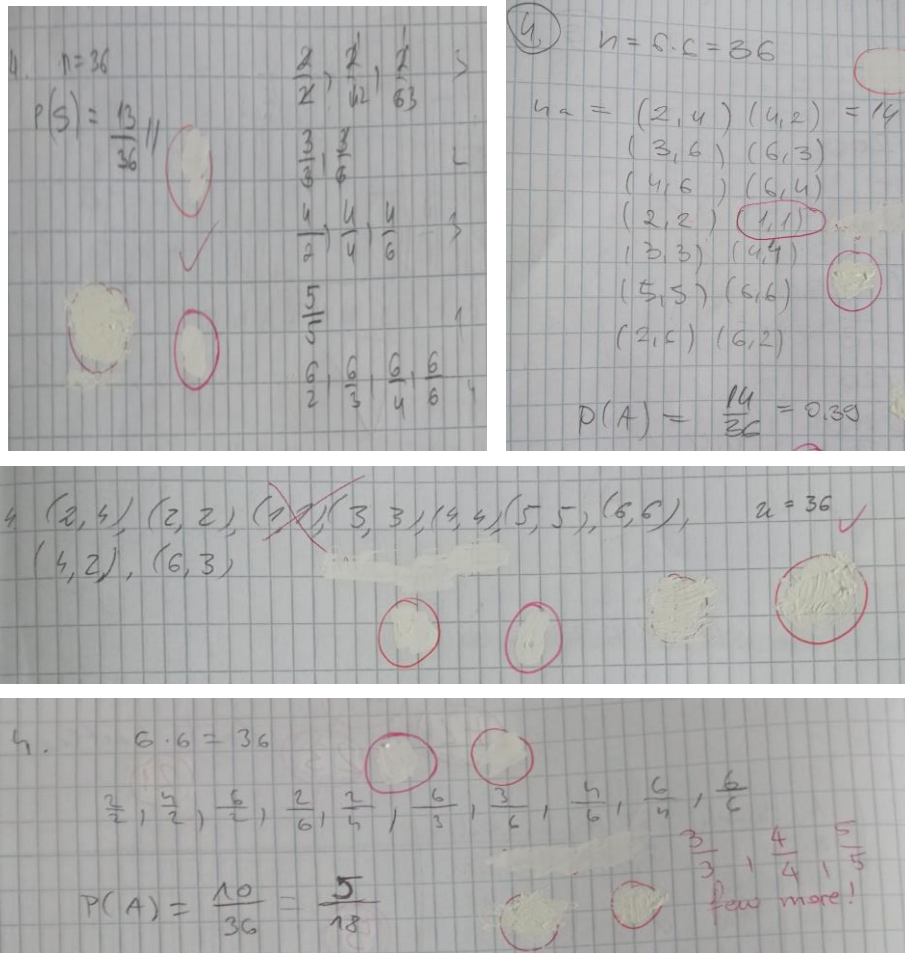 4. n=36
P(S) = 13/36 //
2/2, 2/42, 2/63 3
3/3, 3/6 2
4/2, 4/4, 4/6 3
5/5 1
6/2, 6/3, 6/4, 6/6 4
4. n = 6·6 = 36
na = (2,4) (4,2) = 14
(3,6) (6,3)
(4,6) (6,4)
(2,2) (1,1)
(3,3) (4,4)
(5,5) (6,6)
(2,6) (6,2)
P(A) = 14/36 = 0.39
4. (2,4), (2,2), (1,1), (3,3), (4,4), (5,5), (6,6), n = 36
(4,2), (6,3)
4. 6·6 = 36
2/2, 4/2, 6/2, 2/6, 2/4, 6/3, 3/6, 4/6, 6/4, 6/6
3/3, 4/4, 5/5
P(A) = 10/36 = 5/18
few more!